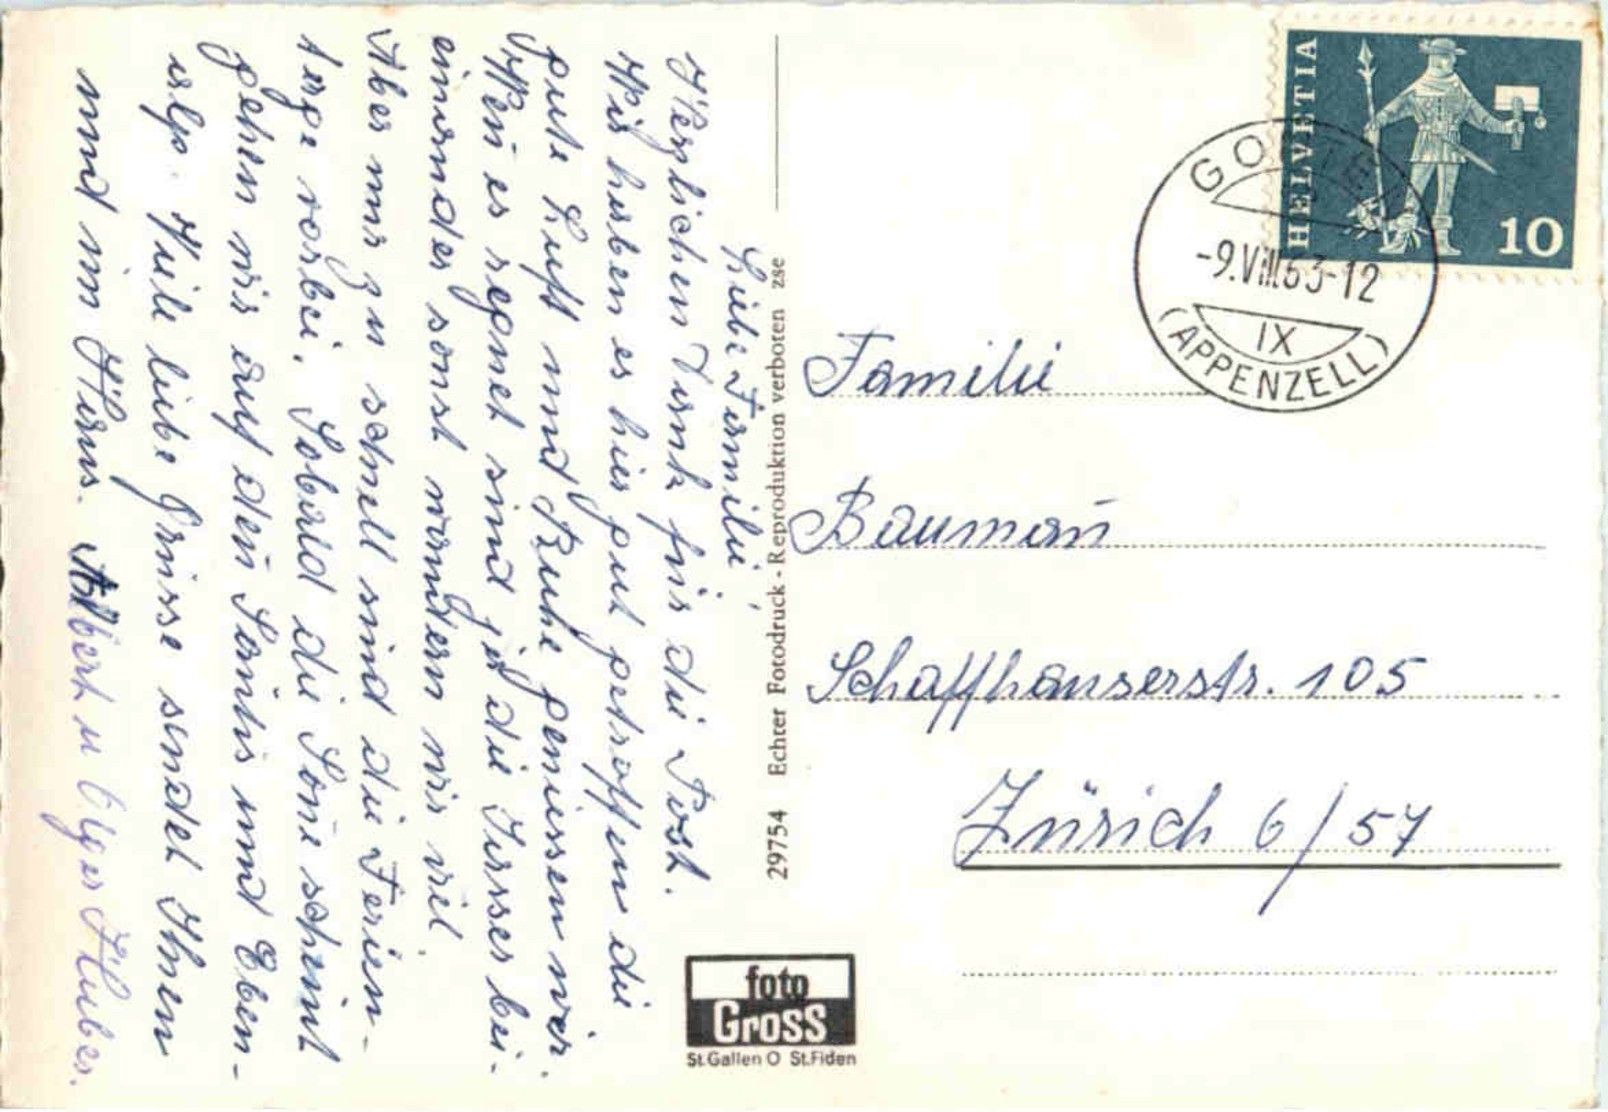 Liebe Familie,
Herzlichen Dank für die Post.
Wir haben es hier gut getroffen die
gute Luft und Ruhe geniessen wir.
Wen̄ es regnet sind ja die Jasser bei-
einander sonst wandern wir viel.
Aber nur zu schnell sind die Ferien-
tage vorbei. Sobald die Son̄e scheint
gehen wir auf den Säntis und Eben-
alp. Viele liebe Grüsse sendet Ihnen
und im Haus. Albert u Huber.
29754 Echter Fotodruck - Reproduktion verboten zse
foto
Gross
St.Gallen O St.Fiden
HELVETIA
10
GONTEN
-9.VIII.63-12
IX
(APPENZELL)
Familie
Bauman̄
Schaffhauserstr. 105
Zürich 6/57